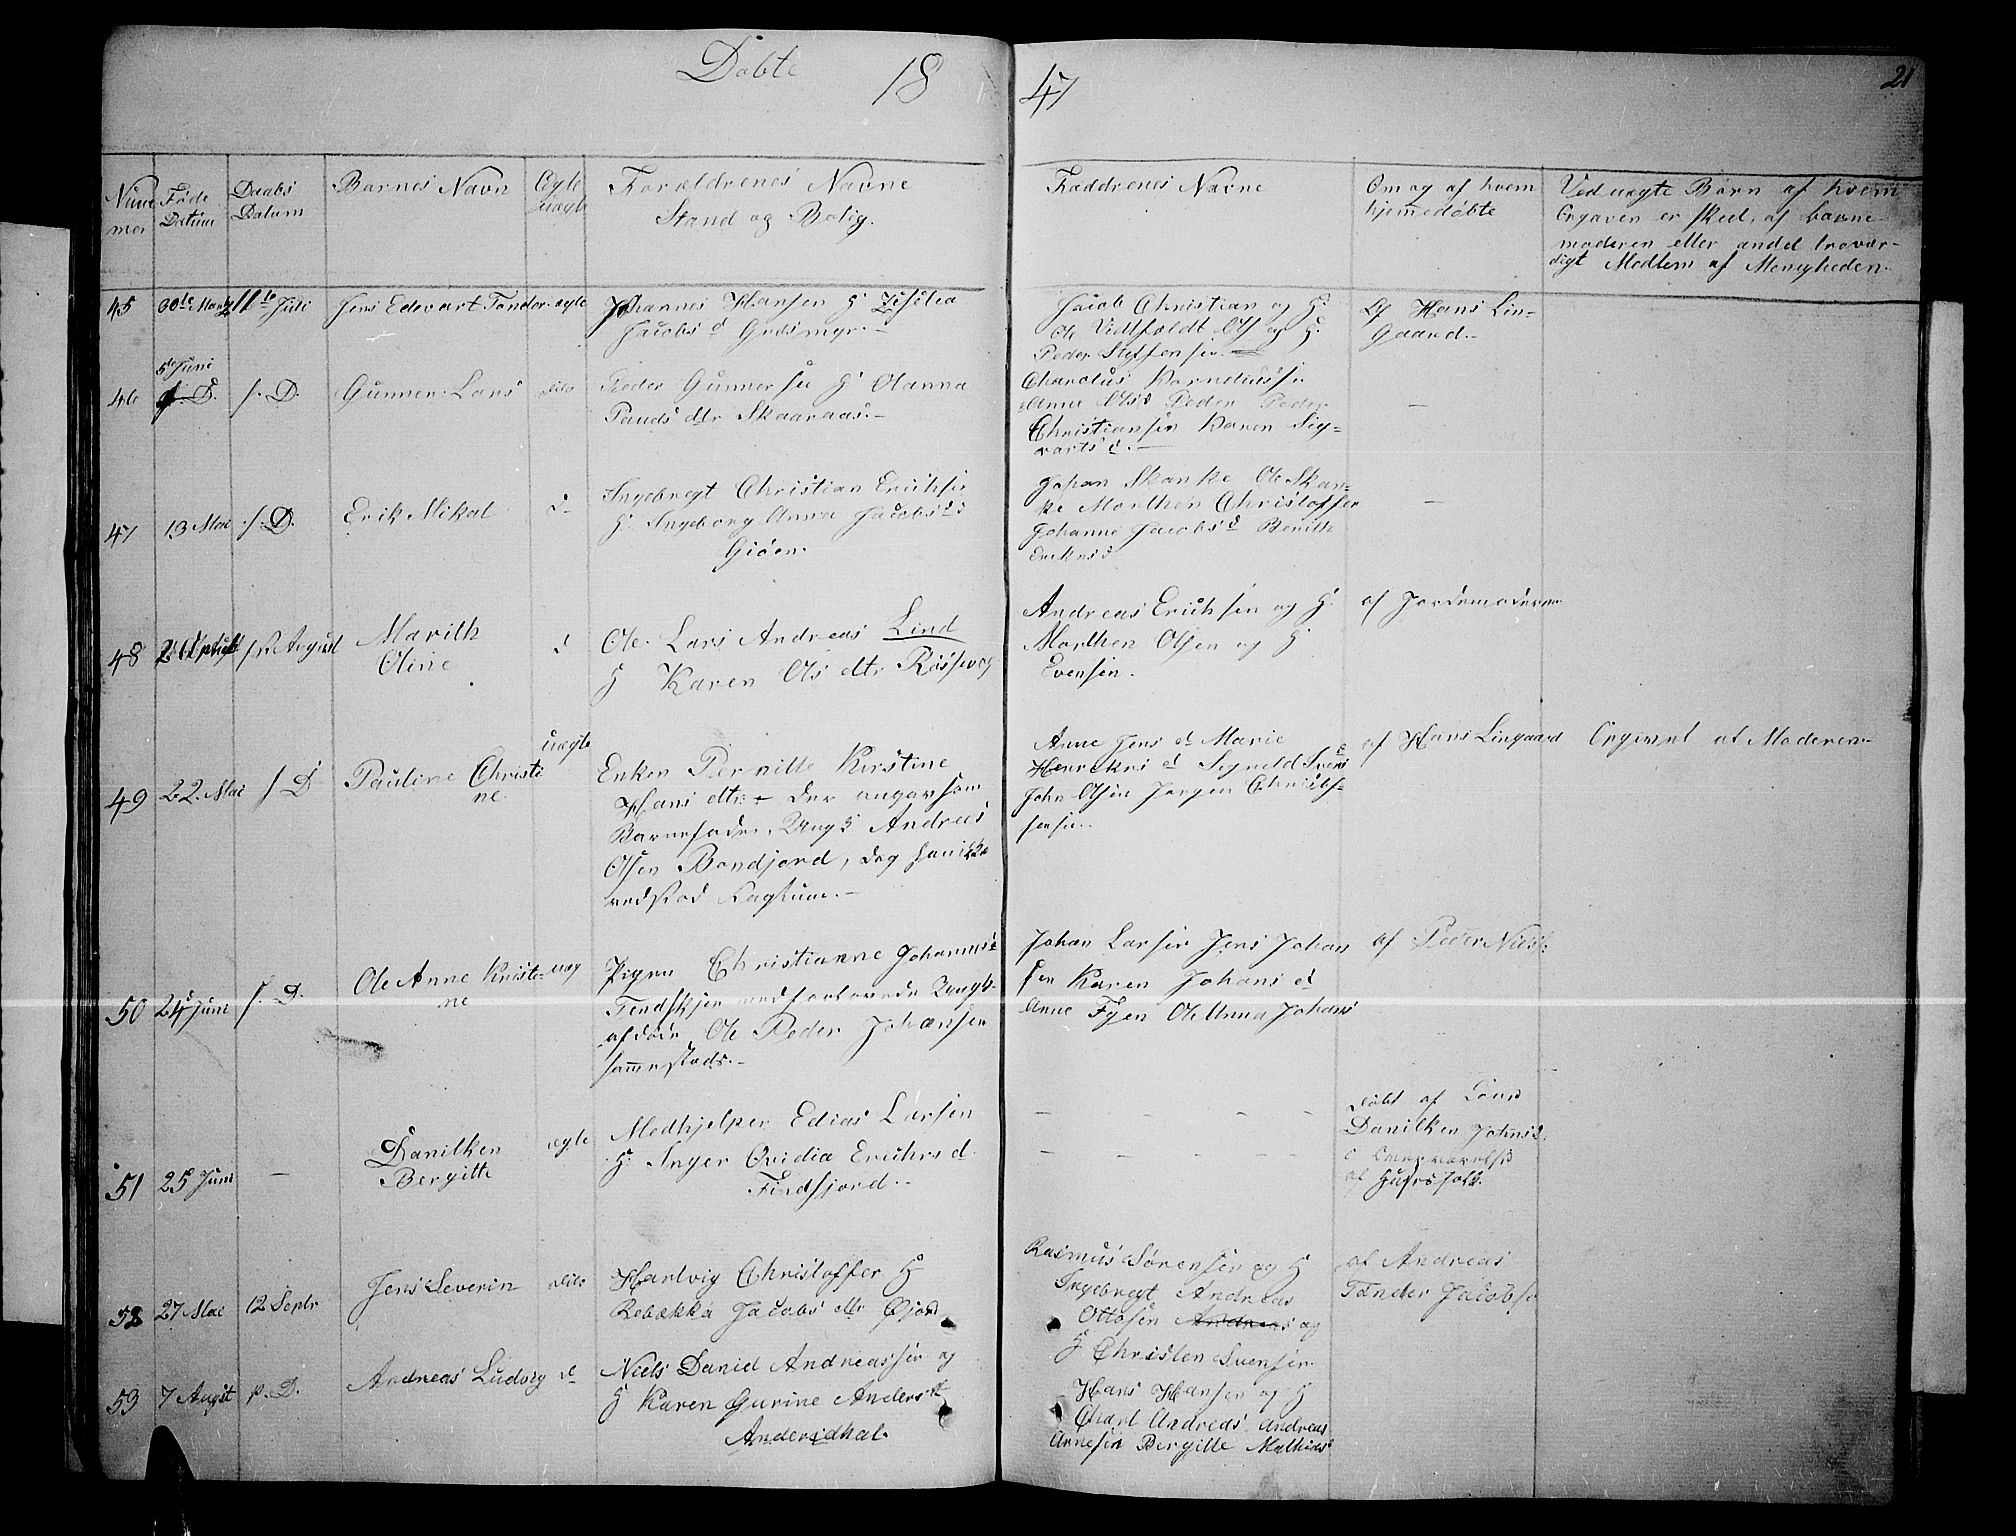 Døbte 18 47 21
Numer
mer
Føde
Datum
Daabs
Datum
Barnes Navn
Ægte
Uægte
Forældrenes Navne
Stand og Bolig.
Faddrenes Navne
Om og af hvem
hjemedøbte
Ved uægte Børn af hvem
Opgaven er skeed, af barne-
moderen eller andet trovær-
digt Medlem af Menigheden.
45 11te Juli Jens Edevart Tønder ægte
Johannes Hansen H
Jacobs d
Jacob Christian og H.
Ole Ols og H.
Peder Steffensen.
Hans Lin-
gaard.
46 5te Juni s. D. Gunner Lars dito
Peder Gunnersen H Olanna
Pauds dtr Skaaraas.
Korneliussen
Anne Ols d Peder Peder
Christiansen Karen Sig-
varts d. —
—
47 13 Mai s. D. Erik Mikal d
Ingebregt Christian Erichsen
H Ingeborg Anna Jacobs d
Giøen.
Johan Skanke Ole Skan-
ke Morthen Christoffer
Johanne Jacobs d Berith
Eriks d
—
48 August Marith
Oline d
Ole Lars Andreas Lind
H Karen Ols dtr
Andreas Erichsen og H.
Morthen Olsen og H
Evensen.
af Jordemoderen
49 22 Mai s D Pauline Christi
ne. uægte
Enken Pernille Kirstine
Hans dtr der angav som
Barnefader, Ungk Andreas
Olsen Bondjord, dog han ikke
vedstod
Anne Jens d Marie
Henriks d Svens
John Olsen Jørgen Christof-
fersen.
af Hans Lingaard
Opgivet af Moderen
50 24 Juni s. D. Ole Anne Kristi-
ne uæg
Pigen Christianne Johannes
med forlovede Ungk.
afdøde Ole Peder Johansen
sammesteds.
Johan Larsen Jens Johan
sen Karen Johans d
Anne Ole Anna Johans
af Peder Niels
51 25 Juni — Danilken
Bergitte ægte
Medhjelper Edias Larsen
H. Inger Ovidia Erichs d
Findfjord.
— — — —
— — — —
døbt af
Danilken Johns d.
af
52 27 Mai 12 Septr Jens Severin dito
Hartvig Christoffer H
Rebekka Jacobs dtr Øjord
Rasmus Sørensen og H
Ingebregt Andreas
Ottosen Andreas og
H Christen Svensen.
af Andreas
Tønder Jacobsen
53 7 August s. D. Andreas Ludvig d
Niels Daniel Andreassen og
H Karen Gurine Anders d
Andersdhal.
Hans Hansen og H
Charl Andreas Andreas
Arnesen Bergitte Mathias